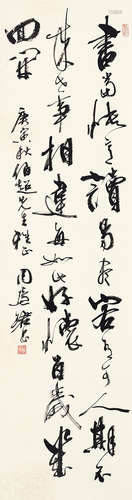 書當快意讀易盡客有可人期不
來世事相違每如此好懷百歲幾
回開
庚寅秋伯超先生雅正周慧珺